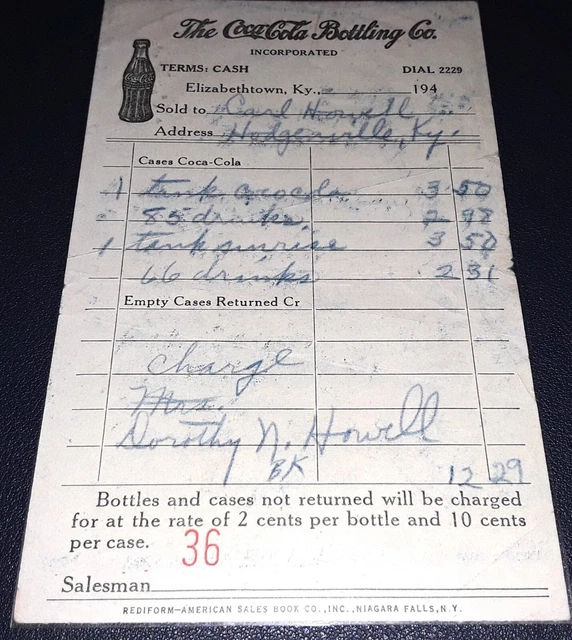 The Coca-Cola Bottling Co.
INCORPORATED
TERMS: CASH DIAL 2229
Elizabethtown, Ky., 194
Sold to Carl Howell
Address Hodgenville, Ky.
Coca-Cola
Cases Coca-Cola
1 tank cococola 3 50
85 drinks 2 98
1 tank sunrise 3 50
66 drinks 2 31
Empty Cases Returned Cr
Charge
Mrs.
Dorothy N. Howell
BK
12 29
Bottles and cases not returned will be charged
for at the rate of 2 cents per bottle and 10 cents
per case. 36
Salesman
REDIFORM—AMERICAN SALES BOOK CO., INC., NIAGARA FALLS, N.Y.